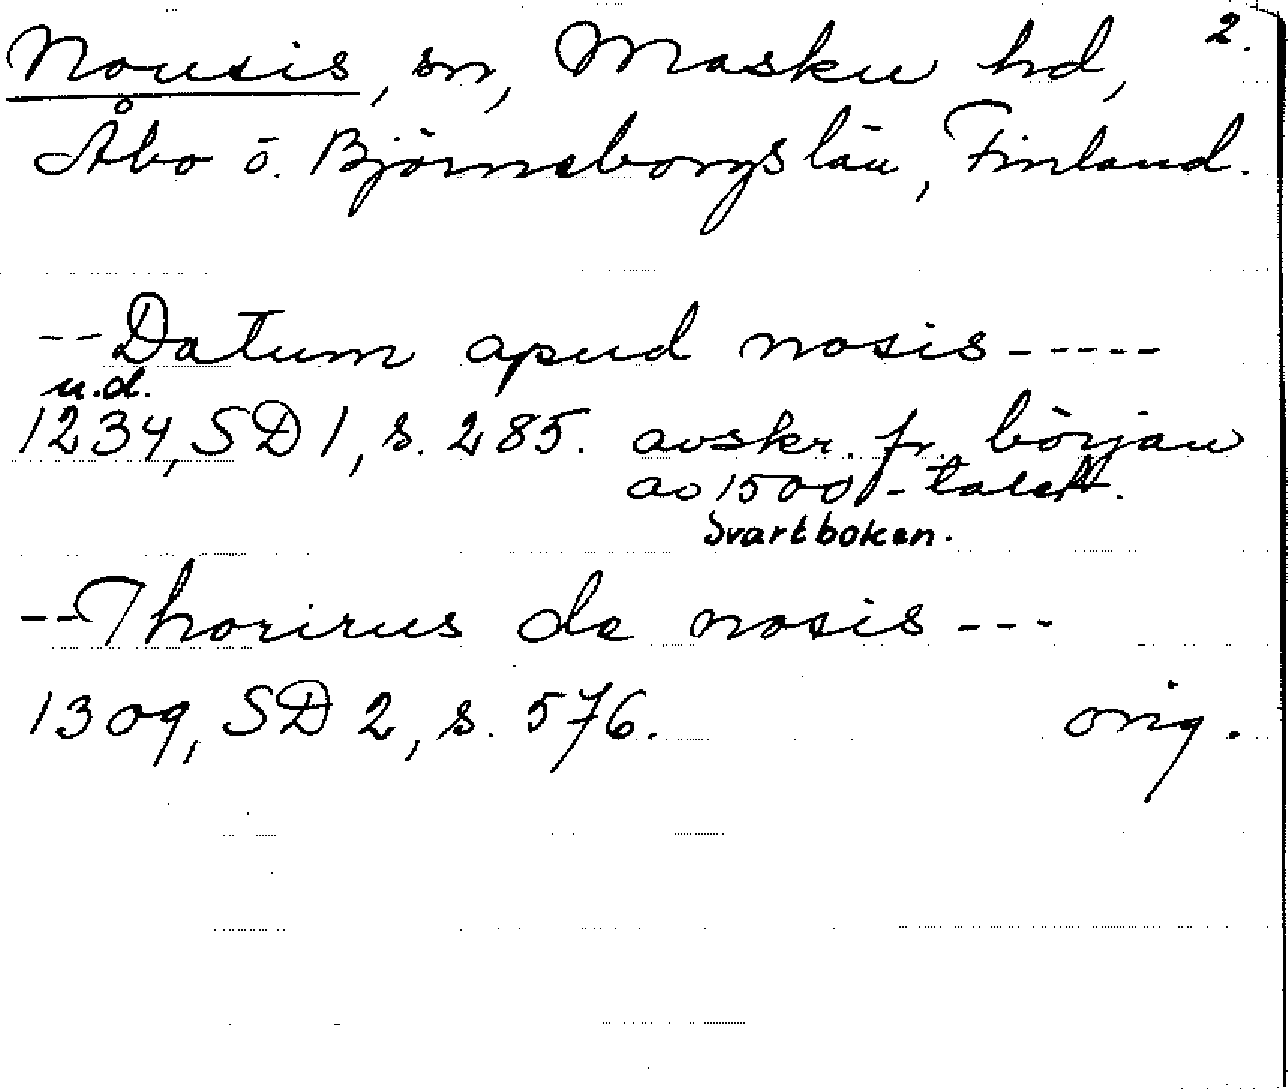 2.
Nousis, sn, Masku hd,
Åbo o. Björneborgs län, Finland.
--Datum apud nosis-----
u.d.
1234, SD 1, s. 285. avskr. fr. början
av 1500-talet.
Svartboken.
--Thorirus de nosis---
1309, SD 2, s. 576. orig.